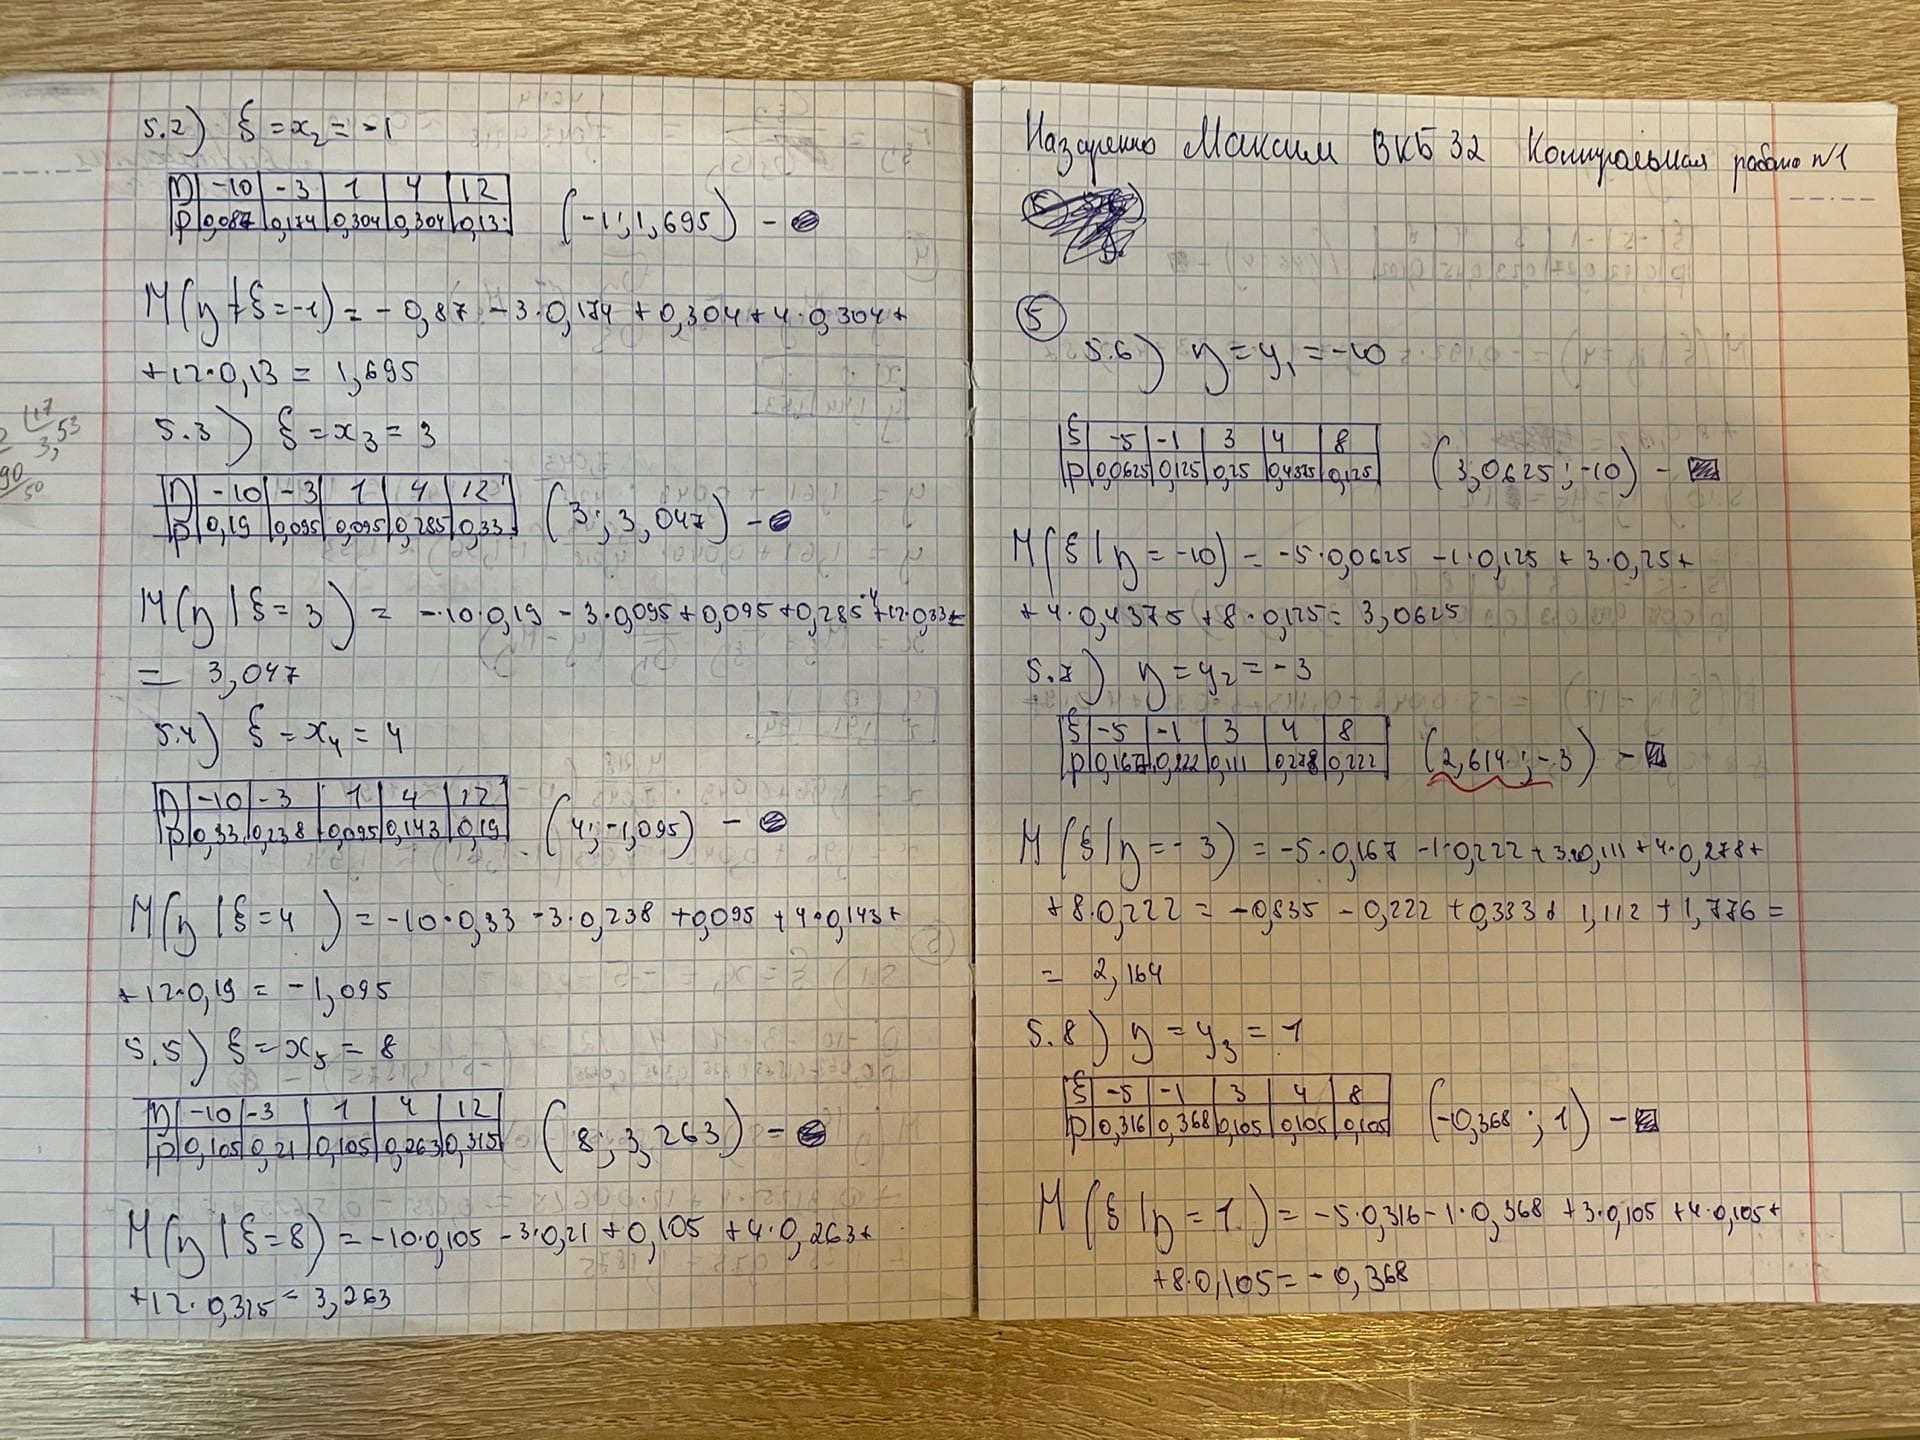 5.2) ξ = x₂ = -1
η | -10 | -3 | 1 | 4 | 12
p | 0,087 | 0,174 | 0,304 | 0,304 | 0,13
(-1; 1,695) -
M(η | ξ = -1) = - 0,87 - 3·0,174 + 0,304 + 4·0,304 +
+ 12·0,13 = 1,695
5.3) ξ = x₃ = 3
η | -10 | -3 | 1 | 4 | 12
p | 0,19 | 0,095 | 0,095 | 0,285 | 0,33
(3; 3,047) -
M(η | ξ = 3) = -10·0,19 - 3·0,095 + 0,095 + 0,285·4 + 12·0,33 =
= 3,047
5.4) ξ = x₄ = 4
η | -10 | -3 | 1 | 4 | 12
p | 0,33 | 0,238 | 0,095 | 0,143 | 0,19
(4; -1,095) -
M(η | ξ = 4) = -10·0,33 - 3·0,238 + 0,095 + 4·0,143 +
+ 12·0,19 = -1,095
5.5) ξ = x₅ = 8
η | -10 | -3 | 1 | 4 | 12
p | 0,105 | 0,21 | 0,105 | 0,263 | 0,315
(8; 3,263) -
M(η | ξ = 8) = -10·0,105 - 3·0,21 + 0,105 + 4·0,263 +
+ 12·0,315 = 3,263
Назаренко Максим ВКБ 32 Контрольная работа №1
5
5.6) η = y₁ = -10
ξ | -5 | -1 | 3 | 4 | 8
p | 0,0625 | 0,125 | 0,25 | 0,4375 | 0,125
(3,0625; -10) -
M(ξ | η = -10) = -5·0,0625 - 1·0,125 + 3·0,25 +
+ 4·0,4375 + 8·0,125 = 3,0625
5.7) η = y₂ = -3
ξ | -5 | -1 | 3 | 4 | 8
p | 0,167 | 0,222 | 0,111 | 0,278 | 0,222
(2,614; -3) -
M(ξ | η = -3) = -5·0,167 - 1·0,222 + 3·0,111 + 4·0,278 +
+ 8·0,222 = -0,835 - 0,222 + 0,333 + 1,112 + 1,776 =
= 2,164
5.8) η = y₃ = 1
ξ | -5 | -1 | 3 | 4 | 8
p | 0,316 | 0,368 | 0,105 | 0,105 | 0,105
(-0,368; 1) -
M(ξ | η = 1) = -5·0,316 - 1·0,368 + 3·0,105 + 4·0,105 +
+ 8·0,105 = - 0,368